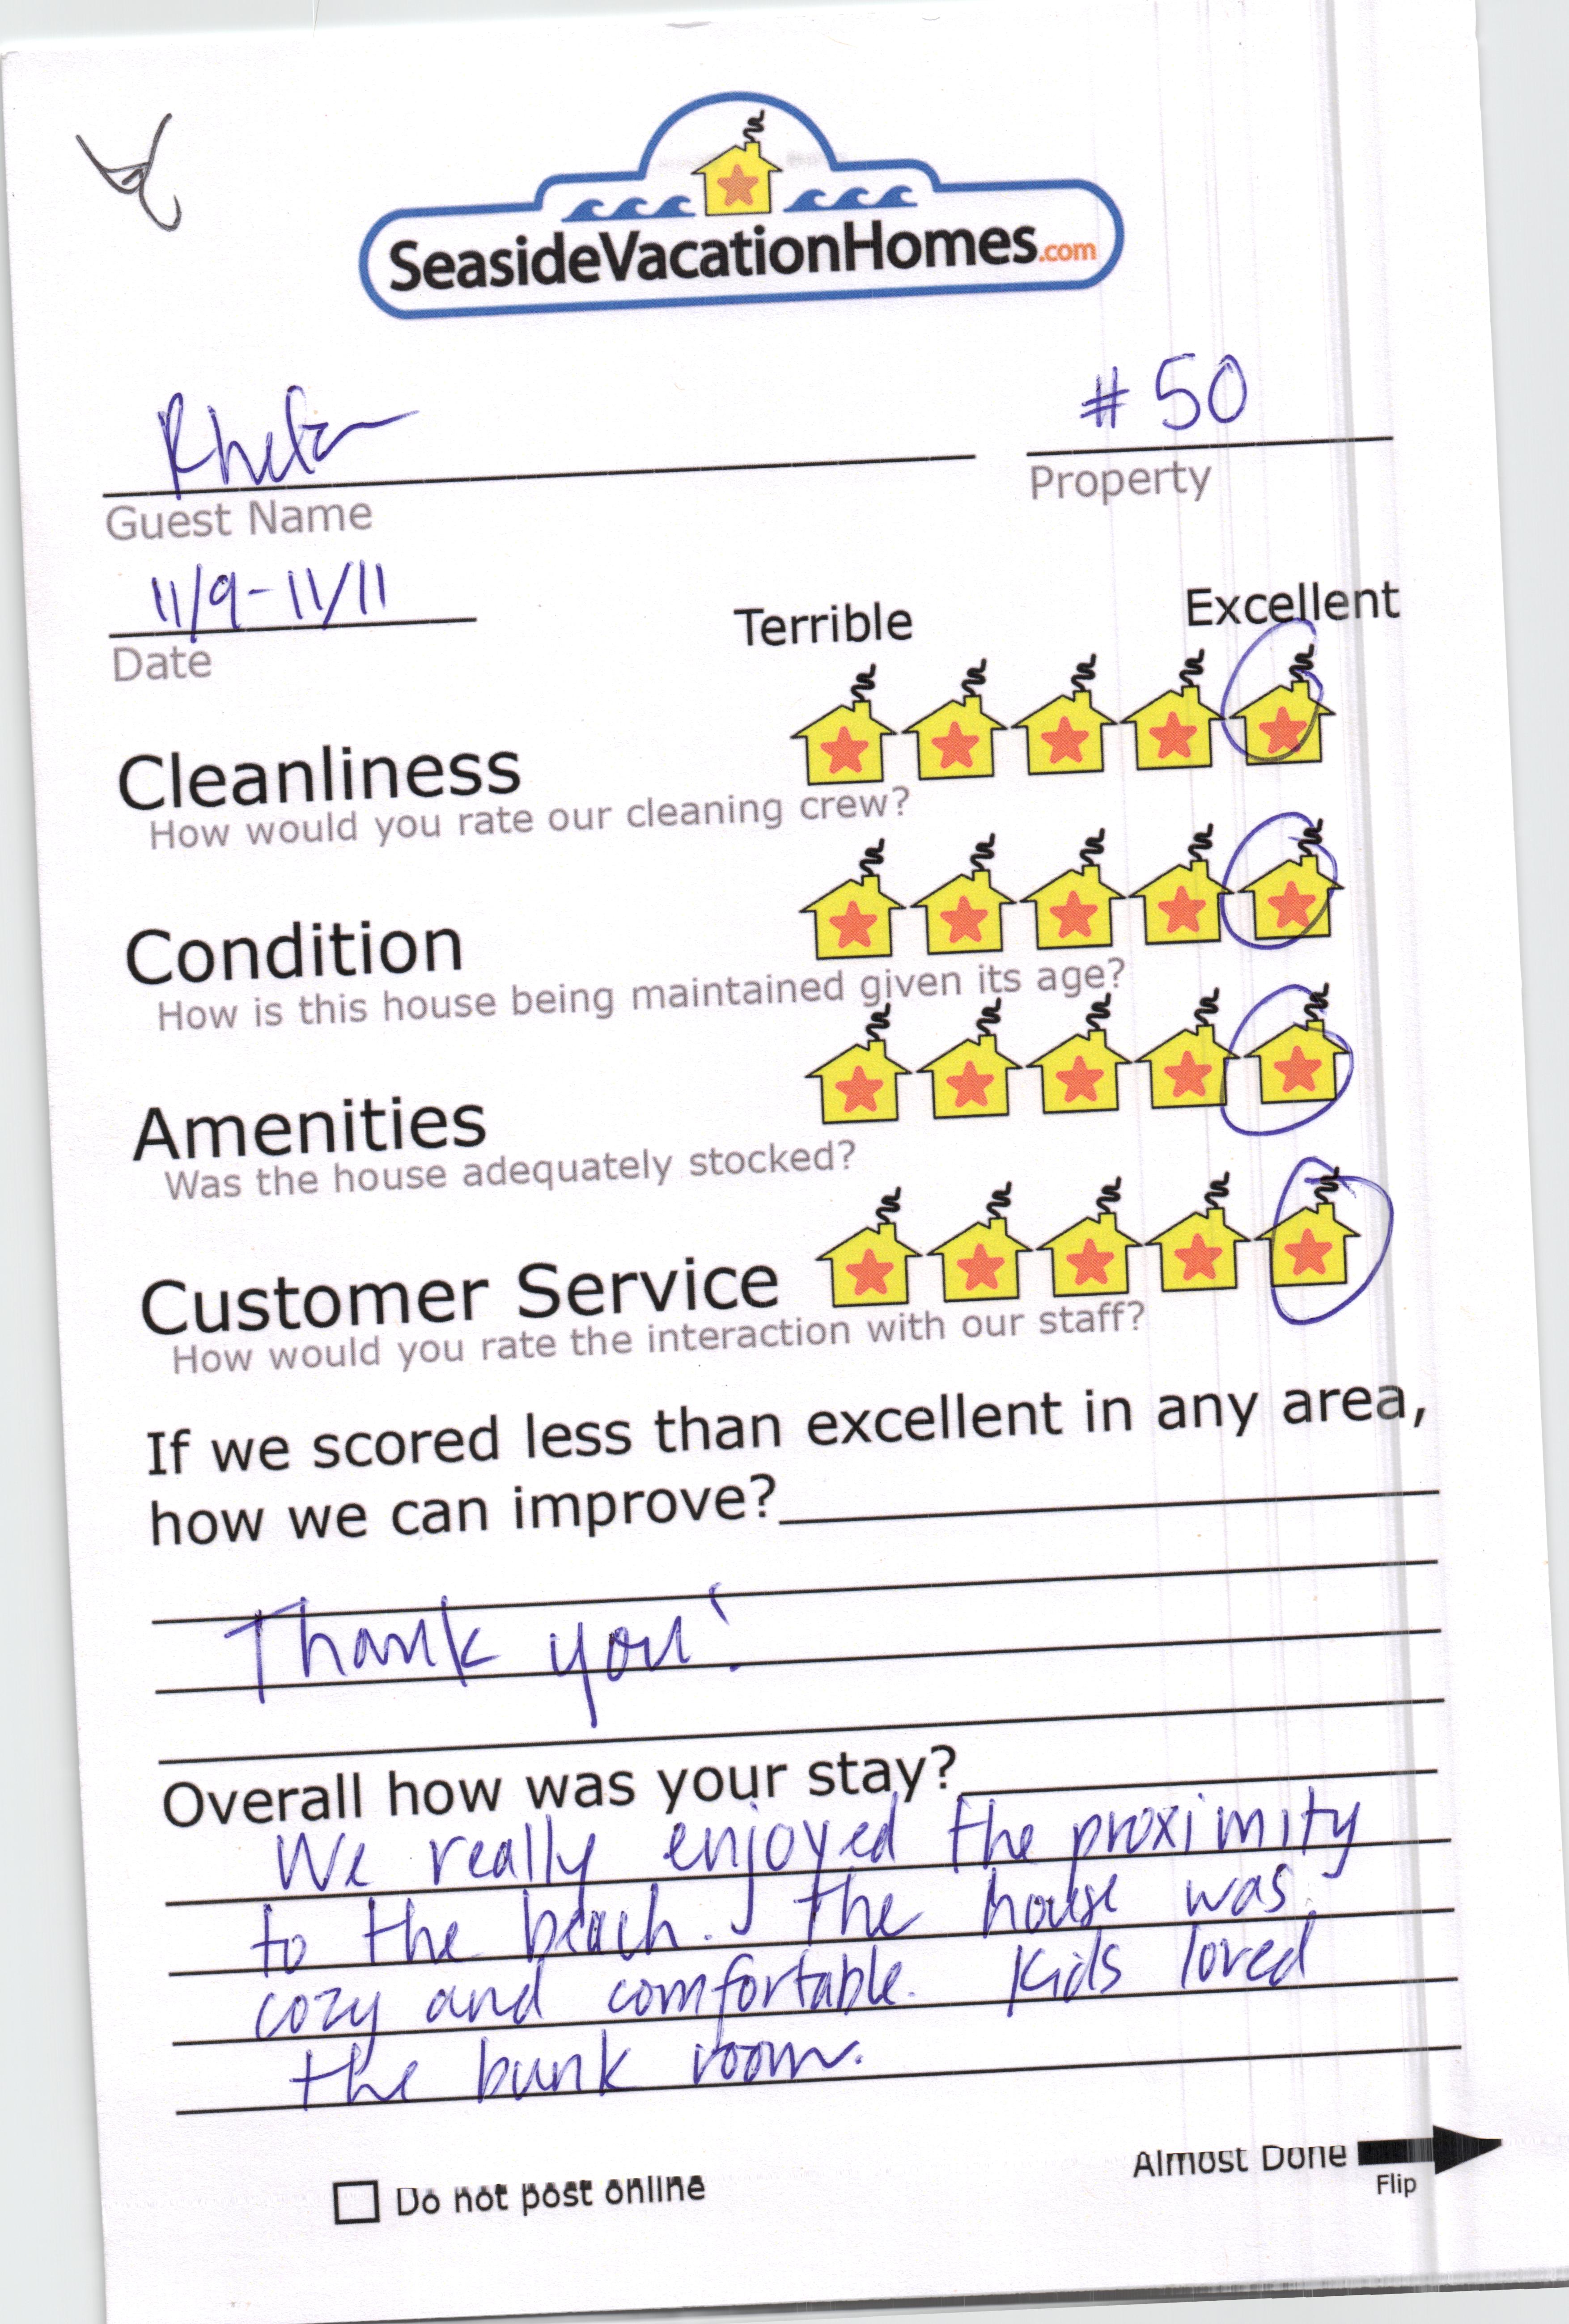 SeasideVacationHomes.com
# 50
Guest Name
Property
11/9-11/11
Date
Terrible
Excellent
Cleanliness
How would you rate our cleaning crew?
Condition
How is this house being maintained given its age?
Amenities
Was the house adequately stocked?
Customer Service
How would you rate the interaction with our staff?
If we scored less than excellent in any area,
how we can improve?
Thank you!
Overall how was your stay?
We really enjoyed the proximity
to the beach. The house was
cozy and comfortable. Kids loved
the bunk room.
Do not post online
Almost Done
Flip